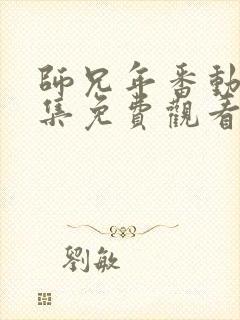 師兄年番動
集免費觀看
劉敏